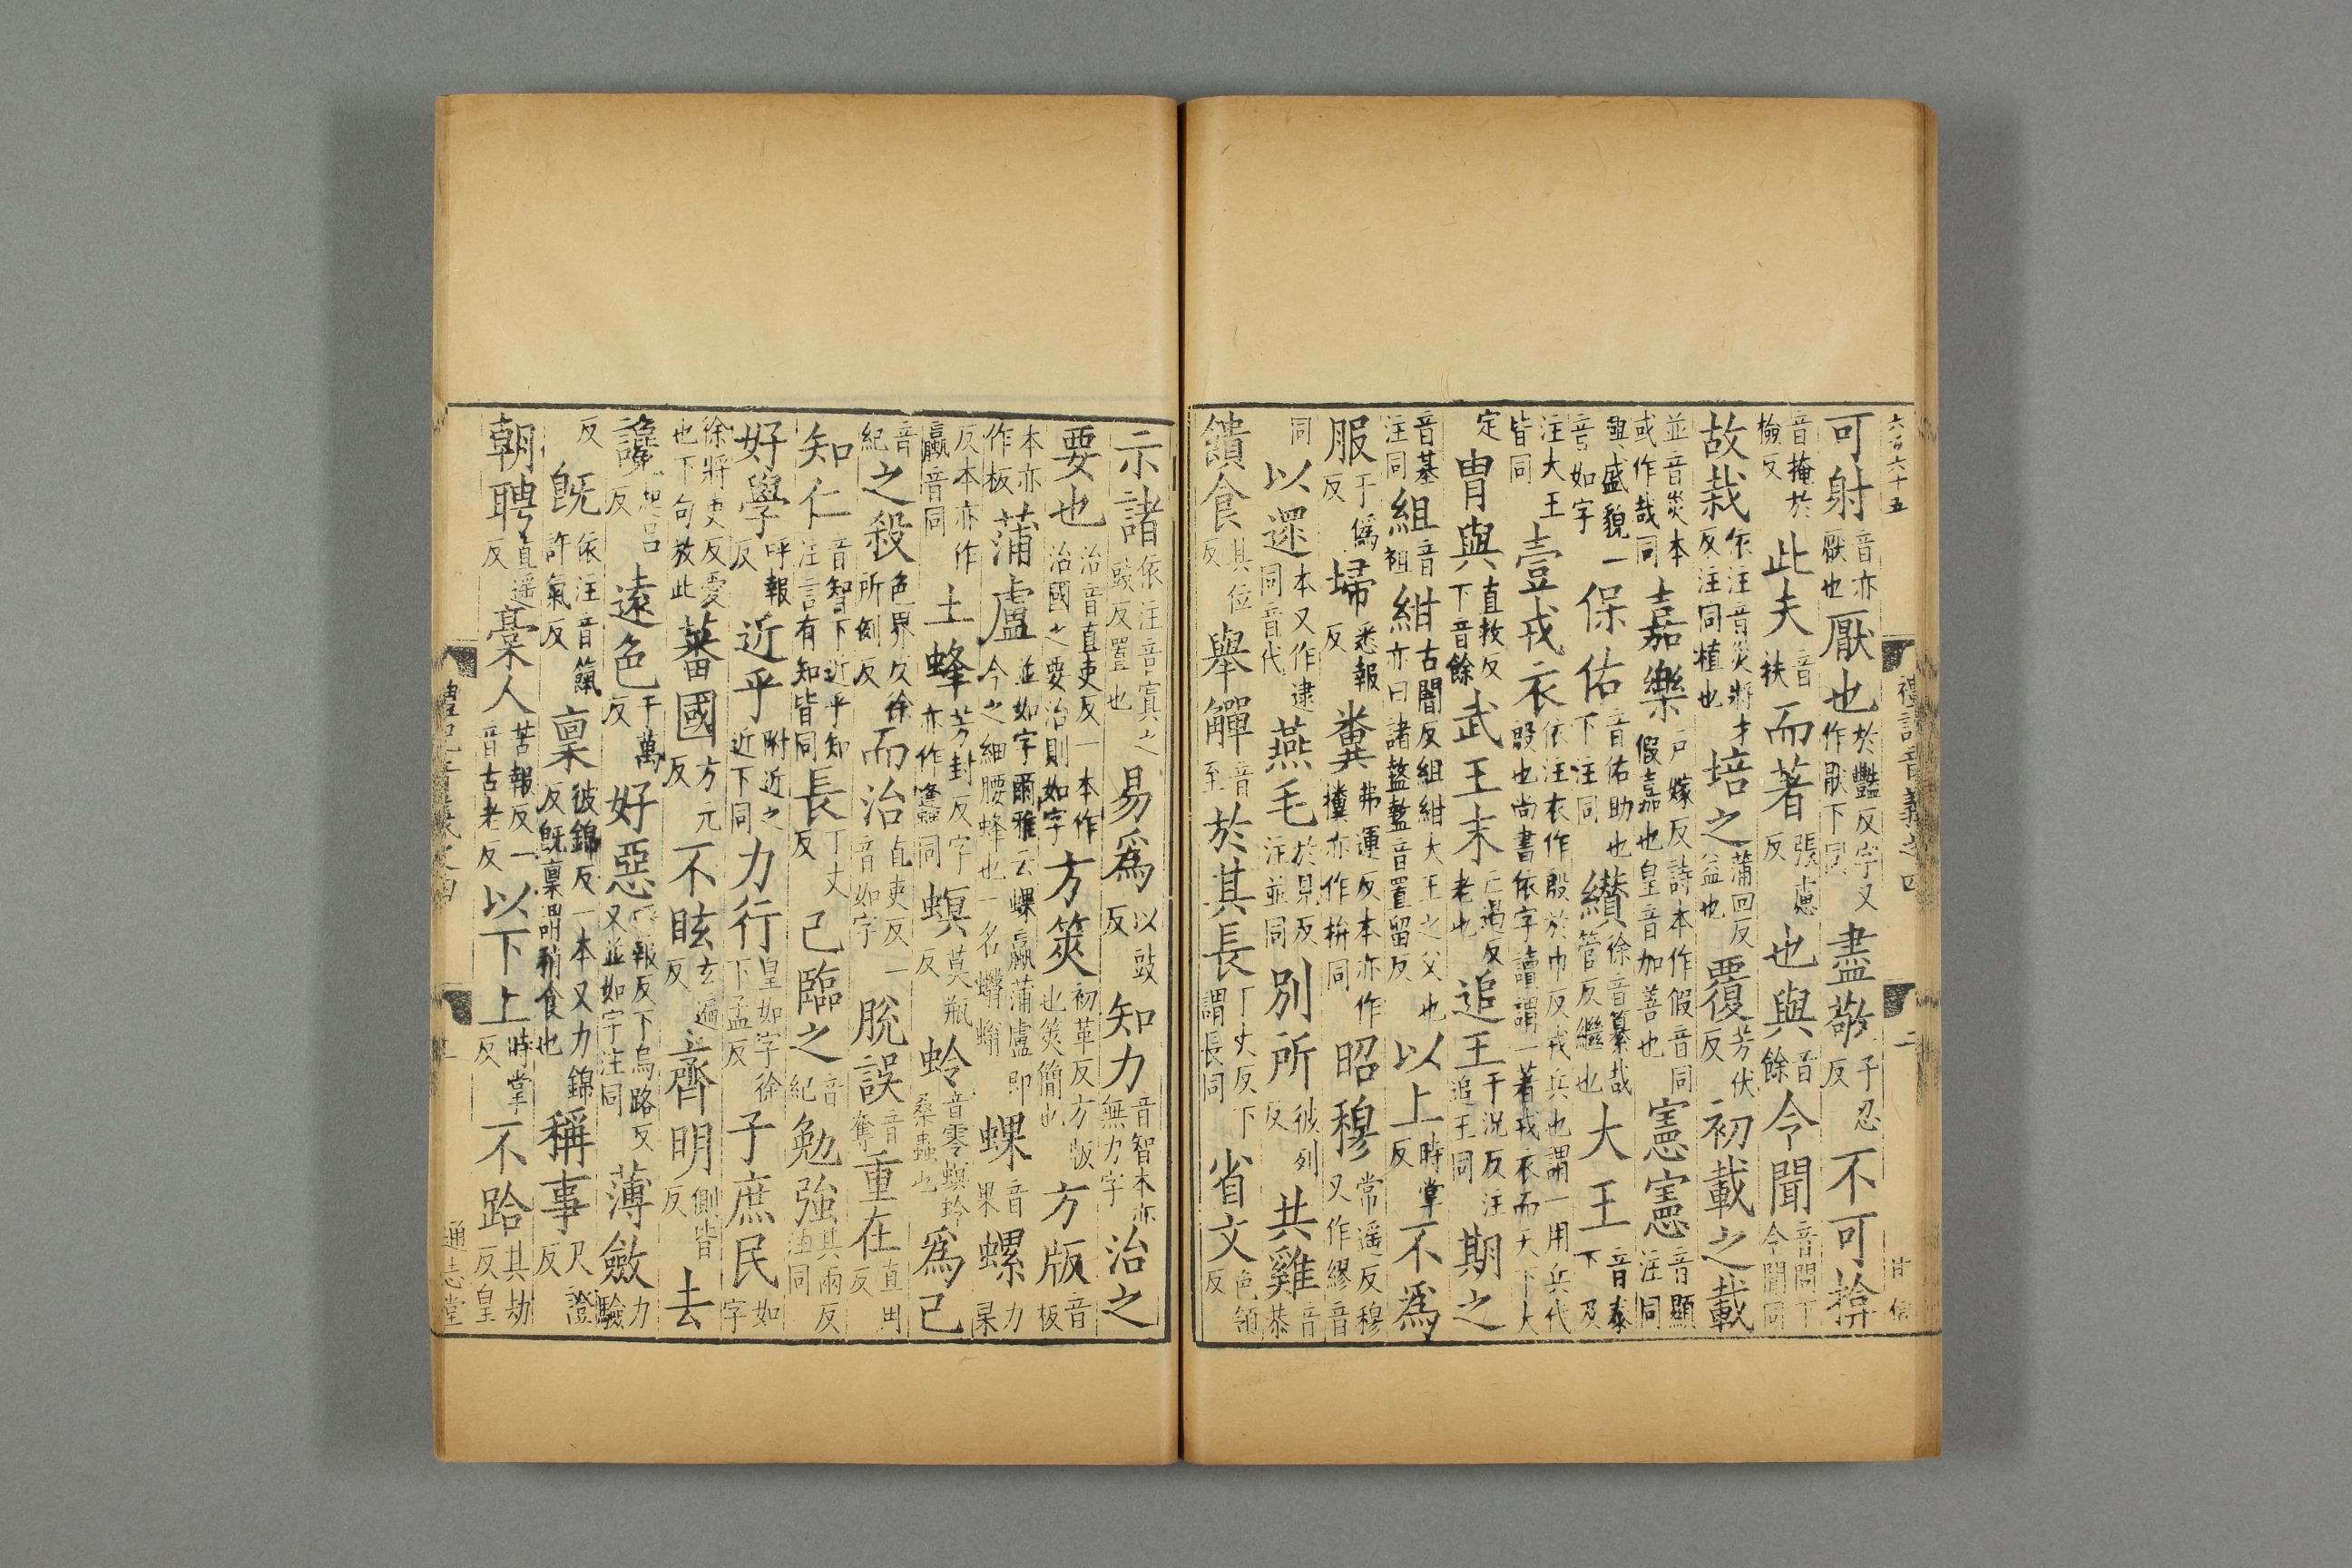 六百六十五
禮記音義之四
二
甘信
可射音亦厭也厭也於豔反字又作猒下同盡敬子忍反不可揜
音掩於檢反此夫音扶而著張慮反也與音餘令聞音問下令聞同
故栽依注音災將才反注同植也培之蒲回反益也覆芳伏反初載之載
並音災本或作哉同嘉樂戶嫁反詩本作假音同假嘉也皇音加善也憲憲音顯注同
輿盛貌一音如字保佑音佑助也下注同纘徐音纂哉管反繼也大王音泰下及
注大王皆同壹戎衣依注衣作殷於巾反戎兵也謂一用兵代殷也尚書依字讀謂一著戎衣而天下大
定冑與直救反下音餘武王末亡遏反老也追王于況反注追王同期之
音基注同組音祖紺古闇反組紺大王之父也亦曰諸盩盩音置留反以上時掌反不爲
服于僞反埽悉報反糞弗運反本亦作㩔亦作拚同昭穆常遥反穆又作繆音
同以遝本又作逮同音代燕毛於見反注並同別所彼列反共雞音恭
饋食其位反舉觶音至於其長丁丈反下謂長同省文色領反
示諸依注音寘之豉反置也易爲以豉反知力音智本亦無力字治之
要也治音直吏反一本作治國之要治則如字方筴初革反方版也筴簡也方版音板
本亦作板蒲盧並如字爾雅云蜾蠃蒲盧即今之細腰蜂也一名蠮螉蜾音果螺力果
反本亦作蠃音同土蜂芳封反字亦作䗬同螟莫瓶反蛉音零螟蛉桑蟲也爲己
音紀之殺色界反徐所例反而治直吏反一音如字脫誤音奪重在直用反
知仁音智下近乎知注言有知皆同長丁丈反己臨之音紀勉強其兩反注同
好學呼報反近乎附近之近下同力行皇如字徐下孟反子庶民如字
徐將吏反愛也下句放此蕃國方元反不眩玄遍反齊明側皆反去
讒起呂反遠色于萬反好惡呼報反下烏路反又並如字注同薄斂力驗
反旣依注音餼許氣反稟彼錦反一本又力錦反旣稟謂稍食也稱事尺證反
朝聘直遥反槀人苦報反一音古老反以下上時掌反不跲其劫反皇
通志堂